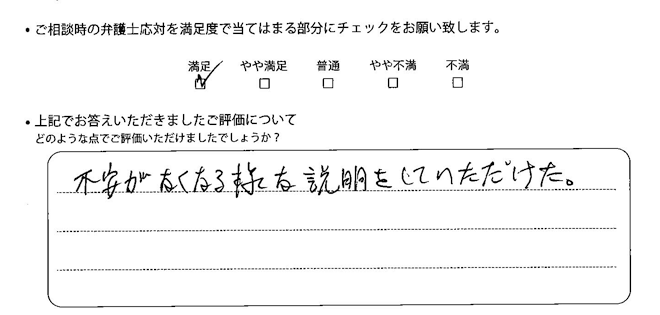 ・ご相談時の弁護士応対を満足度で当てはまる部分にチェックをお願い致します。
満足 やや満足 普通 やや不満 不満
☑ □ □ □ □
・上記でお答えいただきましたご評価について
どのような点でご評価いただけましたでしょうか？
不安がなくなる様な説明をしていただけた。